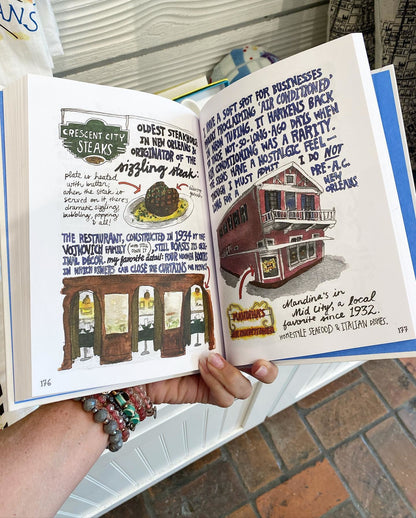 ANS
CRESCENT CITY
STEAKS
OLDEST STEAKHOUSE
IN NEW ORLEANS &
ORIGINATOR OF THE
sizzling steak:
plate is heated
with butter;
when the steak is
served on it, there's
dramatic sizzling,
bubbling, popping
& all!
THE RESTAURANT, CONSTRUCTED IN 1934 BY THE
VOJKOVICH FAMILY STILL BOASTS ITS ORIG-
INAL DÉCOR. my favorite detail: FOUR WOODEN BOOTHS
IN WHICH DINERS CAN CLOSE THE CURTAINS FOR PRIVACY.
176
I HAVE A SOFT SPOT FOR BUSINESSES
PROCLAIMING "AIR CONDITIONED"
NEON TUBING. IT HARKENS BACK
THOSE NOT-SO-LONG-AGO DAYS WHEN
CONDITIONING WAS A RARITY.
SIGNS HAVE A NOSTALGIC FEEL —
I MUST ADMIT — I DO NOT
PRE-A.C.
NEW
ORLEANS
MANDINA'S
Mandina's in
Mid City, a local
favorite since 1932.
HOMESTYLE SEAFOOD & ITALIAN DISHES.
177